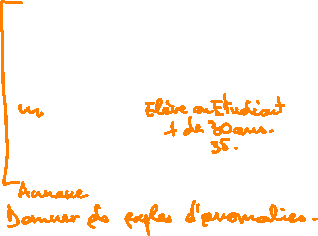 Elève ou Etudiant
+ de 30 ans.
35.
Annexe
Donner de exples d'anomalies.